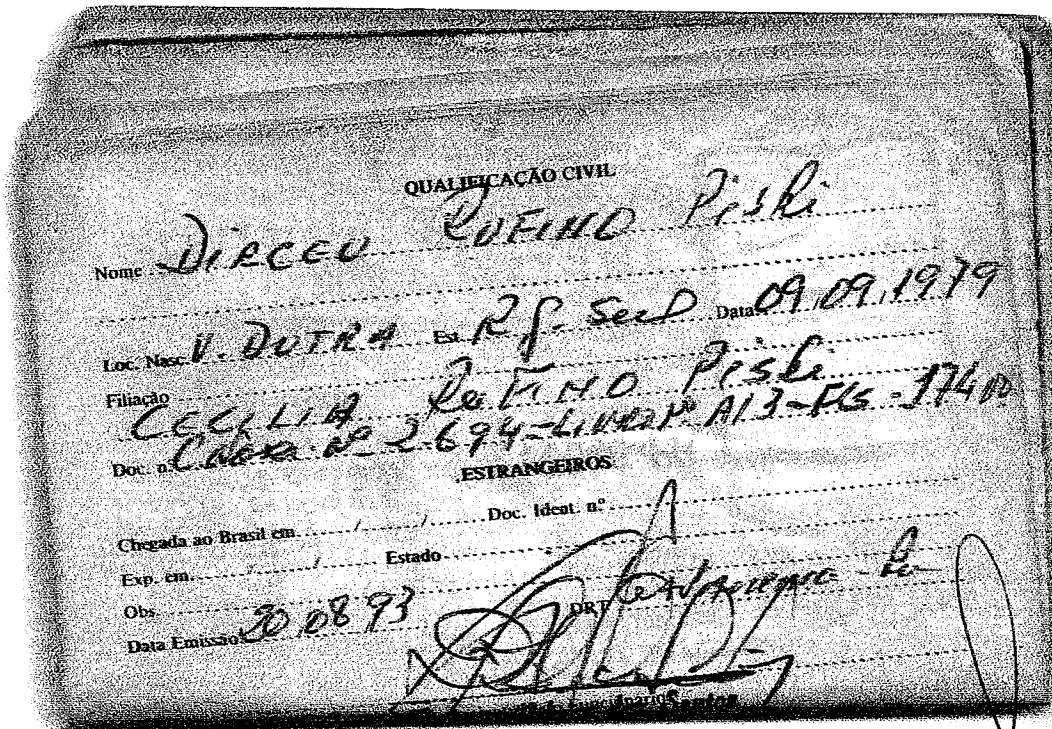 QUALIFICAÇÃO CIVIL
Nome DIRCEU RUFINO Piski
Loc. Nasc. V. DUTRA Est. R.G. Sul Data 09,09,1979
Filiação
CECILIA RUFINO Piski
Doc. n. Nº 2.694-LIVRO Nº A13-FLS-174
ESTRANGEIROS
Chegada ao Brasil em / / Doc. Ident. n.º
Exp. em / / Estado
Obs.
Data Emissão 20 08 93 DRT
Santos